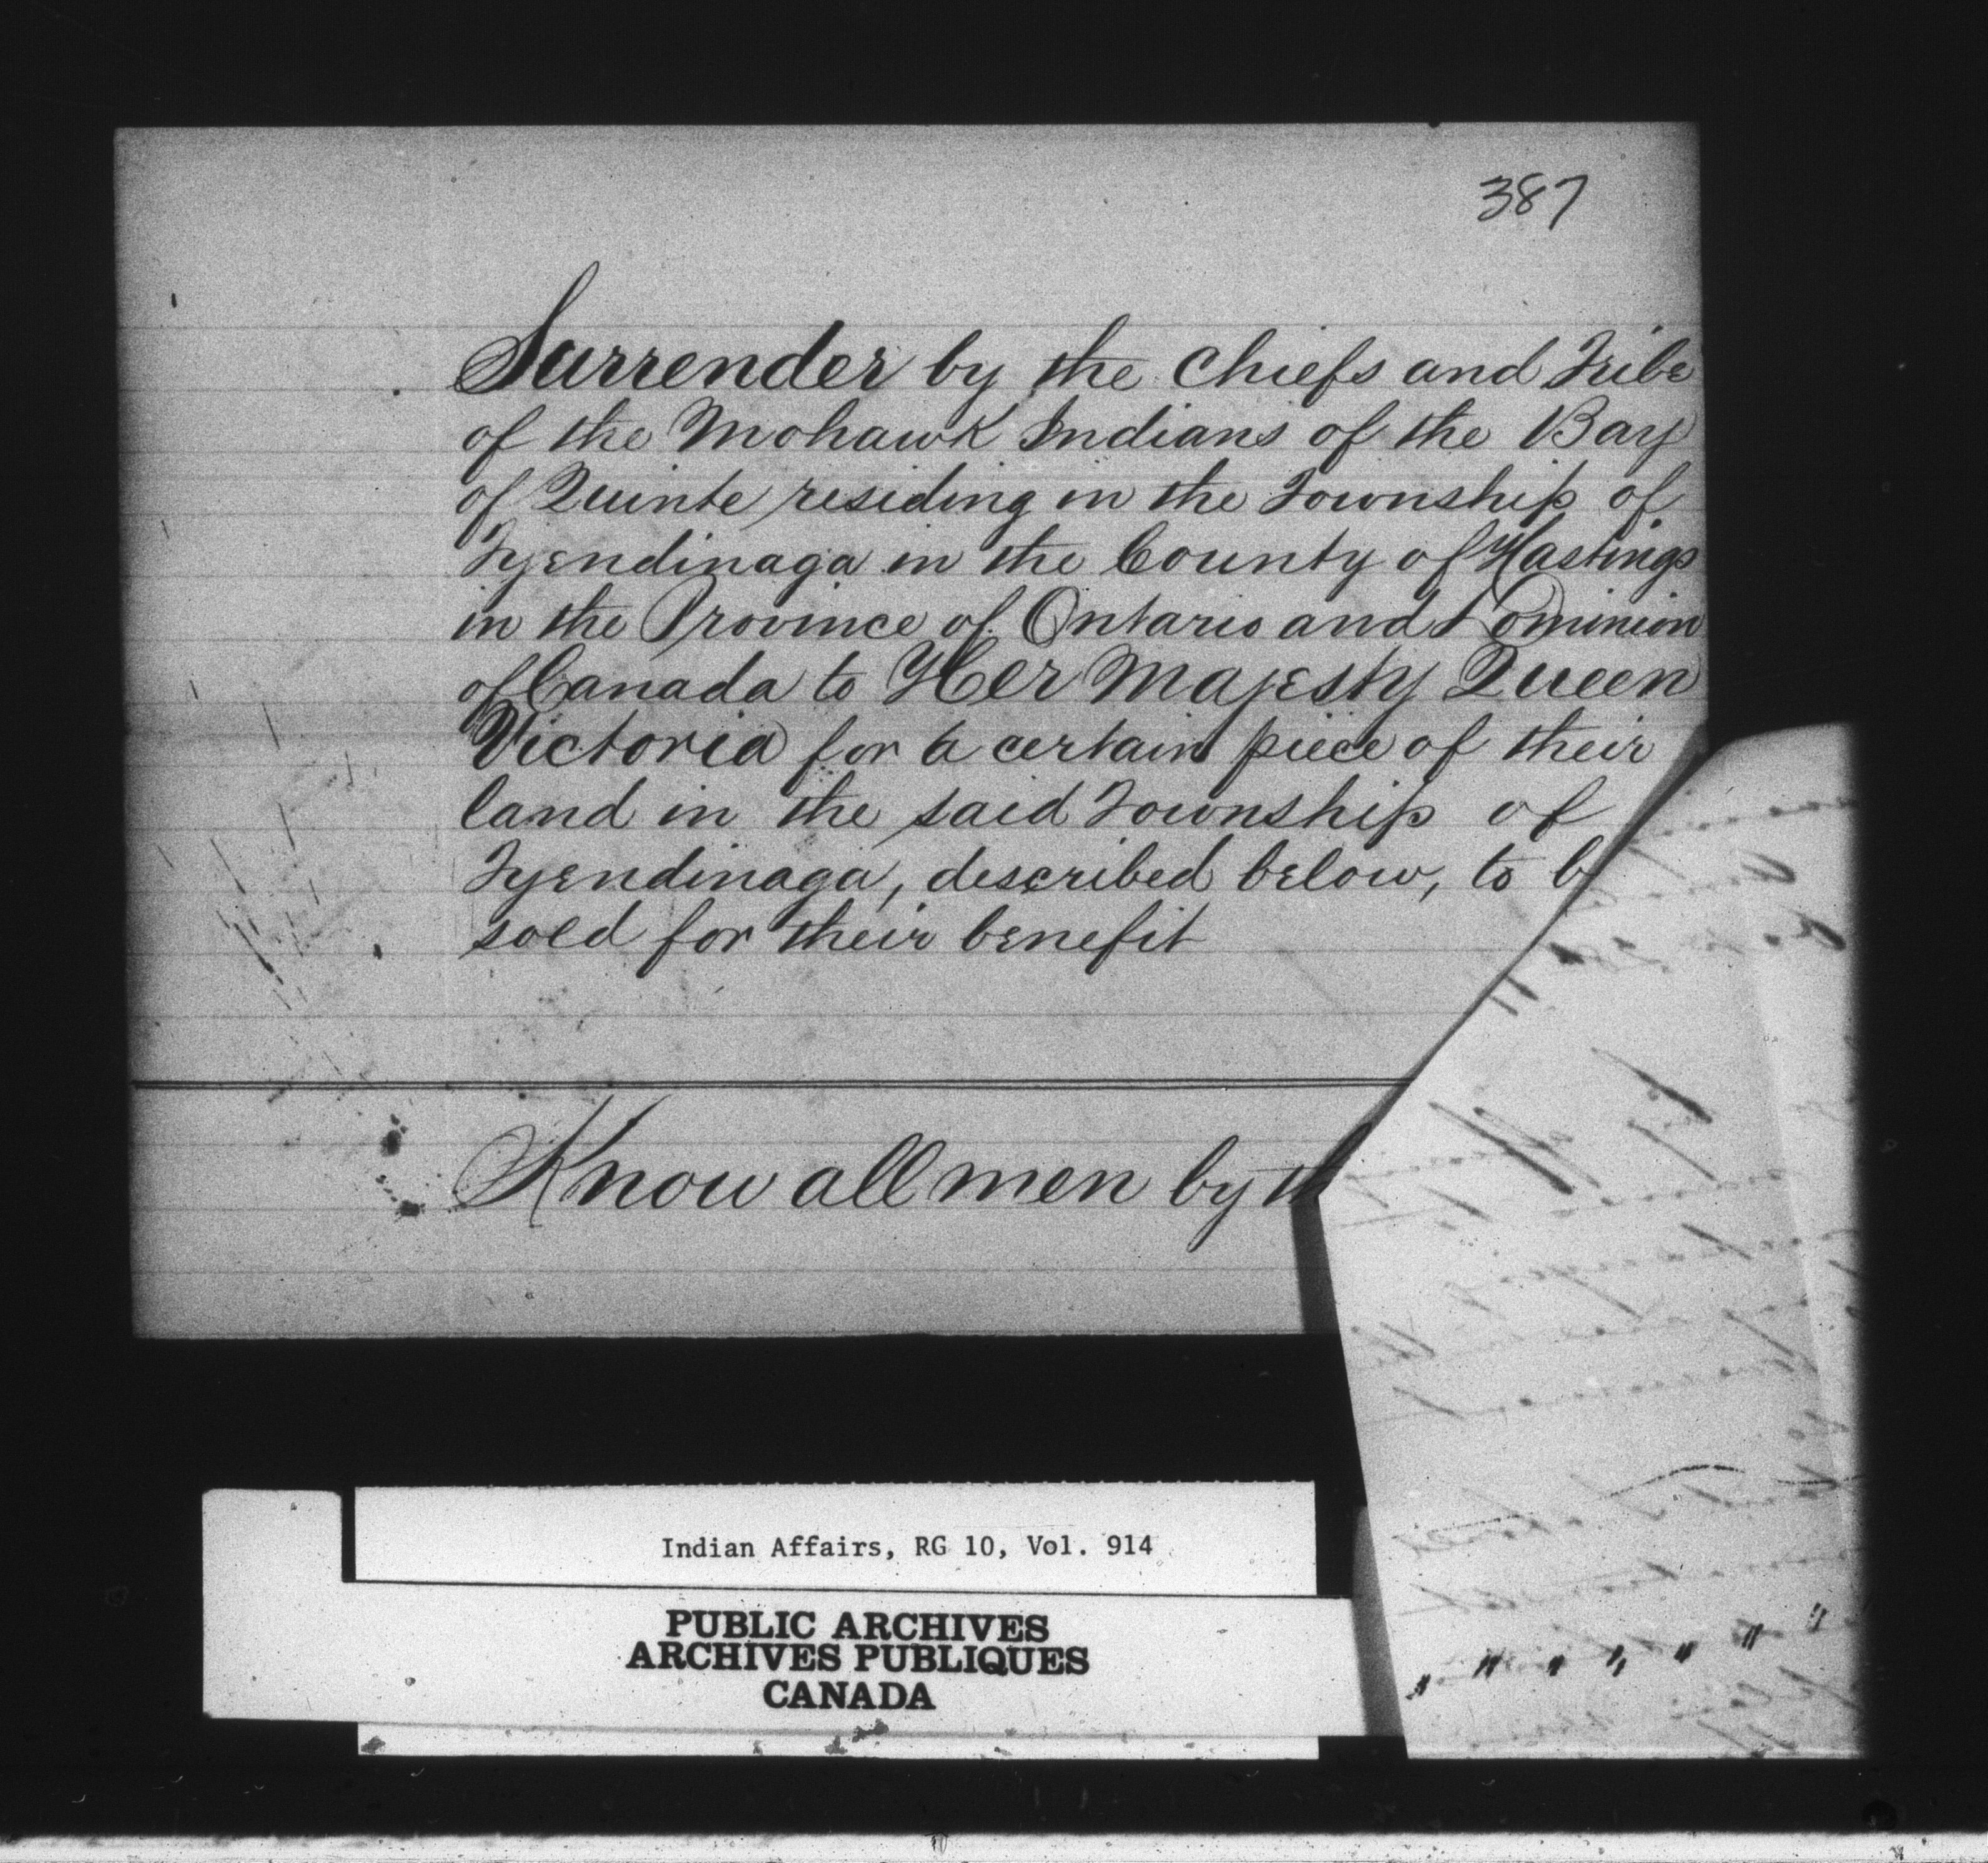 387
Surrender by the Chiefs and Tribe
of the Mohawk Indians of the Bay
of Quinte residing in the Township of
Tyendinaga in the County of Hastings
in the Province of Ontario and Dominion
of Canada to Her Majesty Queen
Victoria for a certain piece of their
land in the said Township of
Tyendinaga, described below, to b
sold for their benefit
Know all men by th
Indian Affairs, RG 10, Vol. 914
PUBLIC ARCHIVES
ARCHIVES PUBLIQUES
CANADA